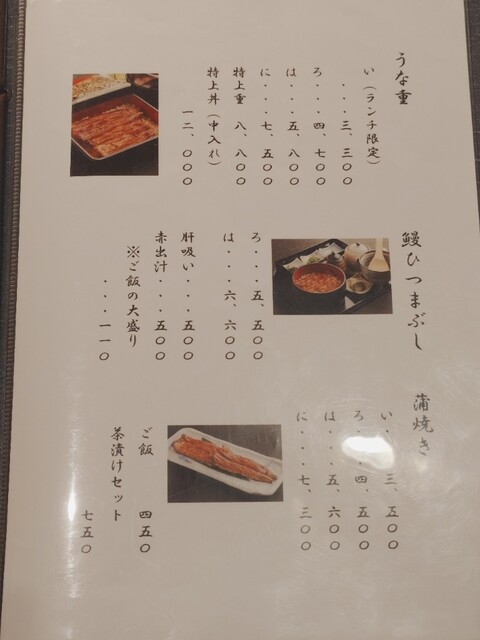 うな重
い(ランチ限定)
・・・・三、三〇〇
ろ・・・四、七〇〇
は・・・五、八〇〇
に・・・七、五〇〇
特上重 八、八〇〇
特上丼(中入れ)
一二、〇〇〇
鰻ひつまぶし
ろ・・・・五、五〇〇
は・・・・六、六〇〇
肝吸い・・・五〇〇
赤出汁・・・五〇〇
※ご飯の大盛り
・・・・一一〇
蒲焼き
い・・・・三、五〇〇
ろ・・・・四、五〇〇
は・・・・五、六〇〇
に・・・・七、三〇〇
ご飯 四五〇
茶漬けセット
七五〇